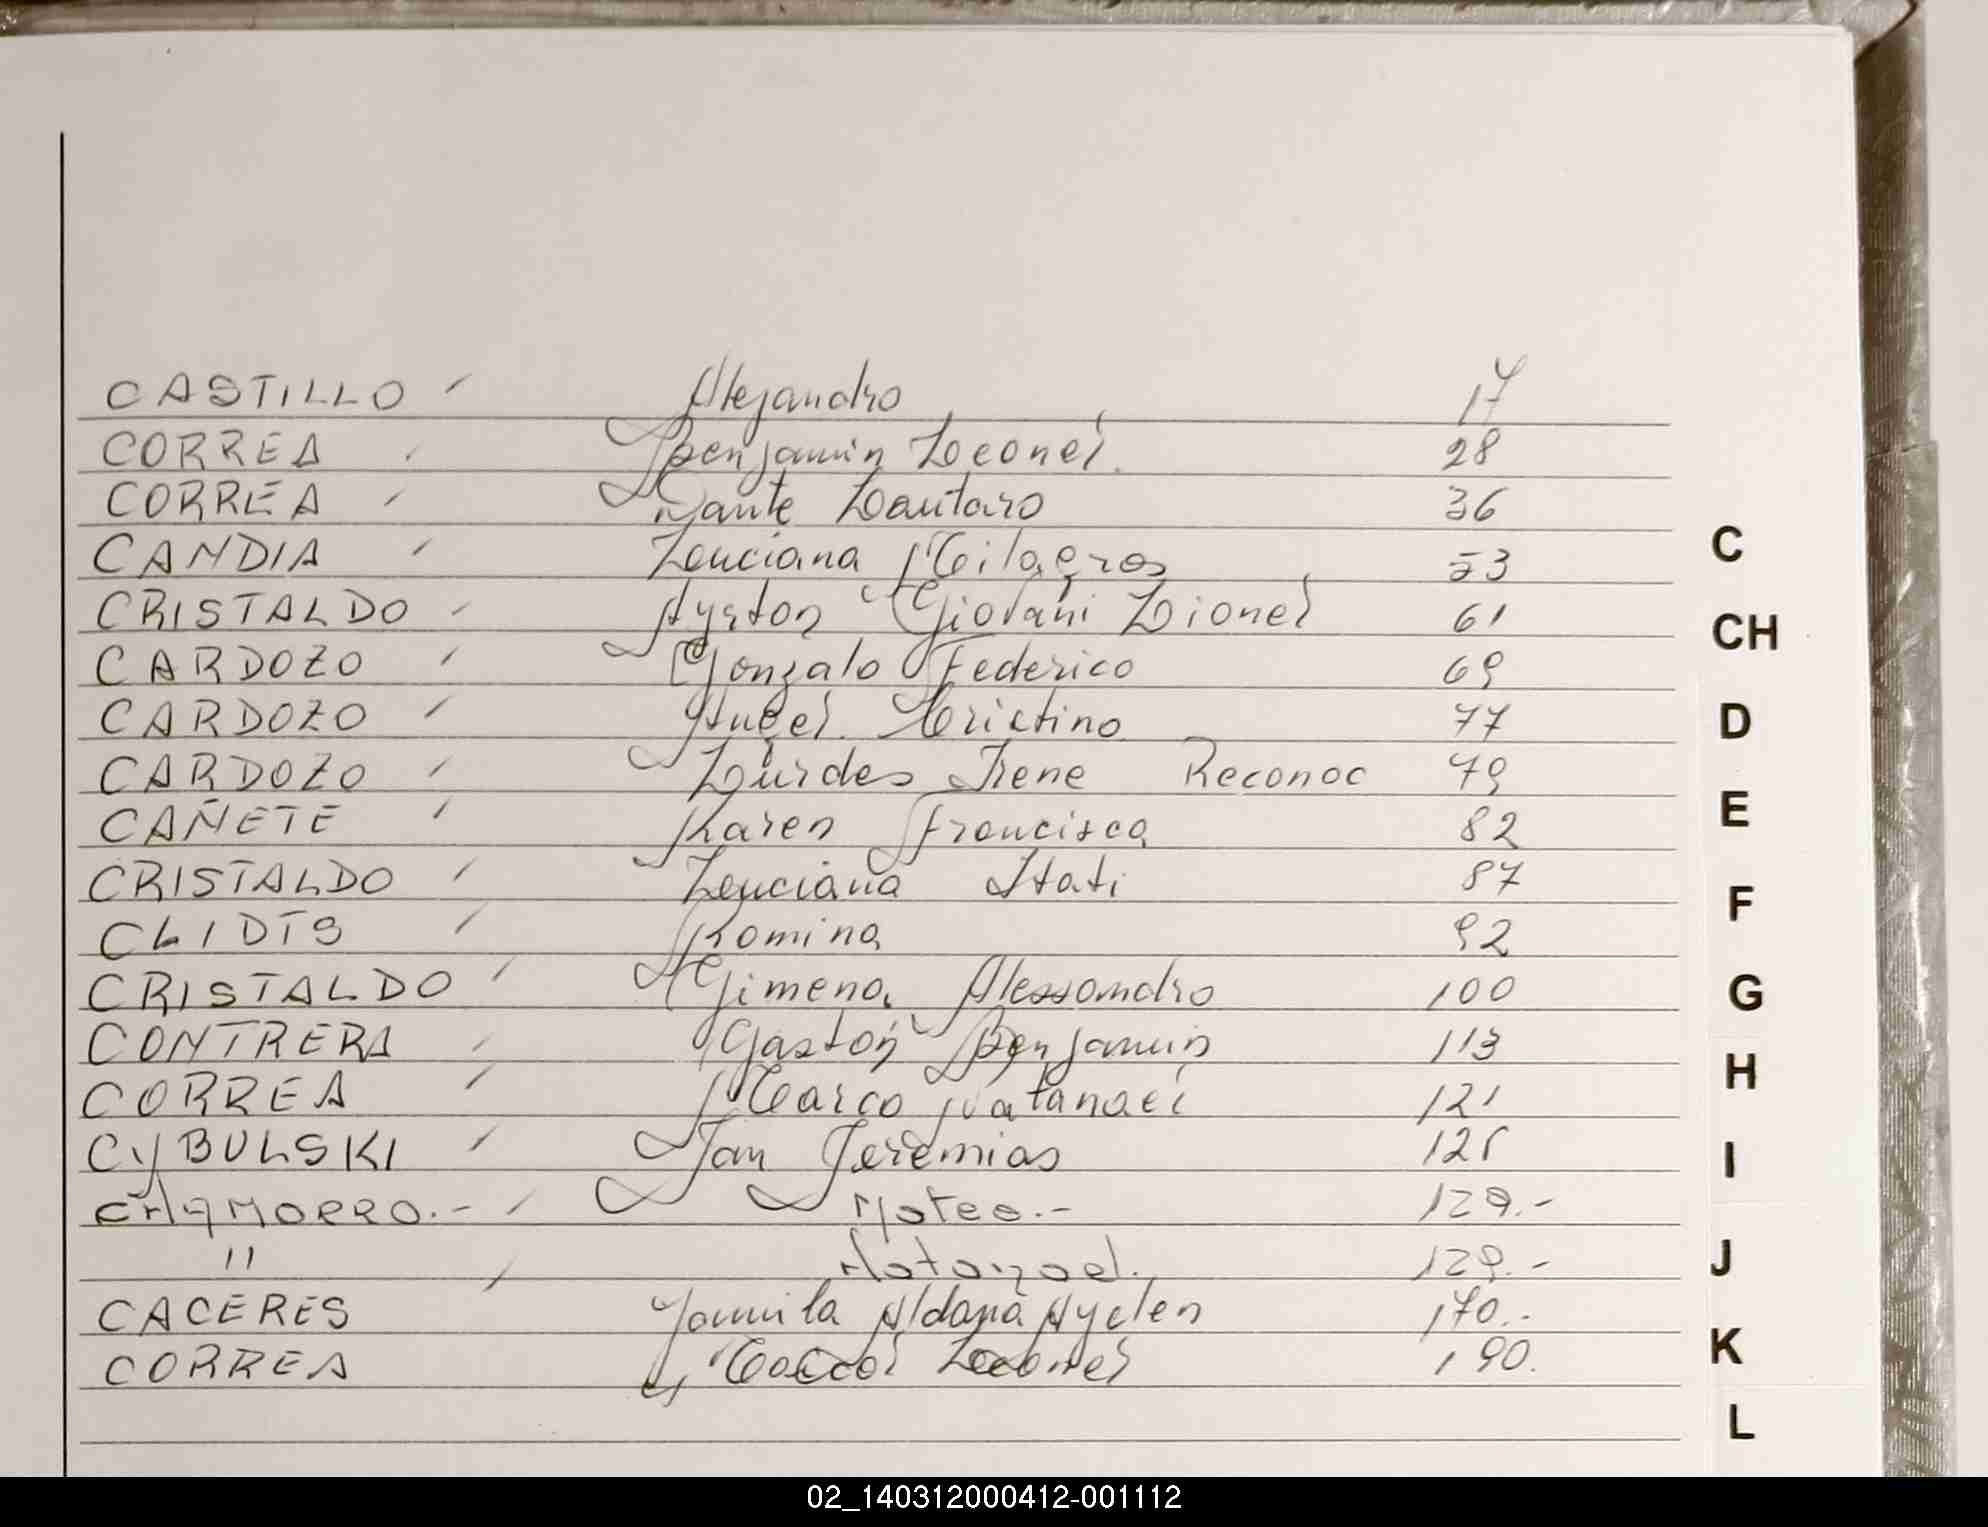 CASTILLO Alejandro 17
CORREA Benjamin Leonel 28
CORREA Dante Lautaro 36
CANDIA Luciana Milagros 53
CRISTALDO Ayrton Giovani Lionel 61
CARDOZO Gonzalo Federico 69
CARDOZO Angel Cristino 77
CARDOZO Lourdes Irene Reconoc 79
CAÑETE Karen Francisca 82
CRISTALDO Luciana Itati 87
CLIDTS Romina 92
CRISTALDO Gimena Alessandro 100
CONTRERA Gastón Benjamin 113
CORREA Marco Natanael 121
CYBULSKI Jan Jeremias
CHAMORRO.- Mateo.- 129.-
" Natanael. 129.-
CACERES Yamila Aldana Ayelen 170.-
CORREA Leonel 190.
C
CH
D
E
F
G
H
I
J
K
L
02_140312000412-001112